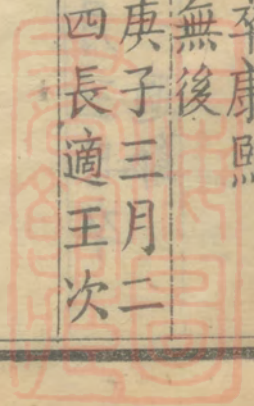 卒康熙
無後
庚子三月二
四長適王次